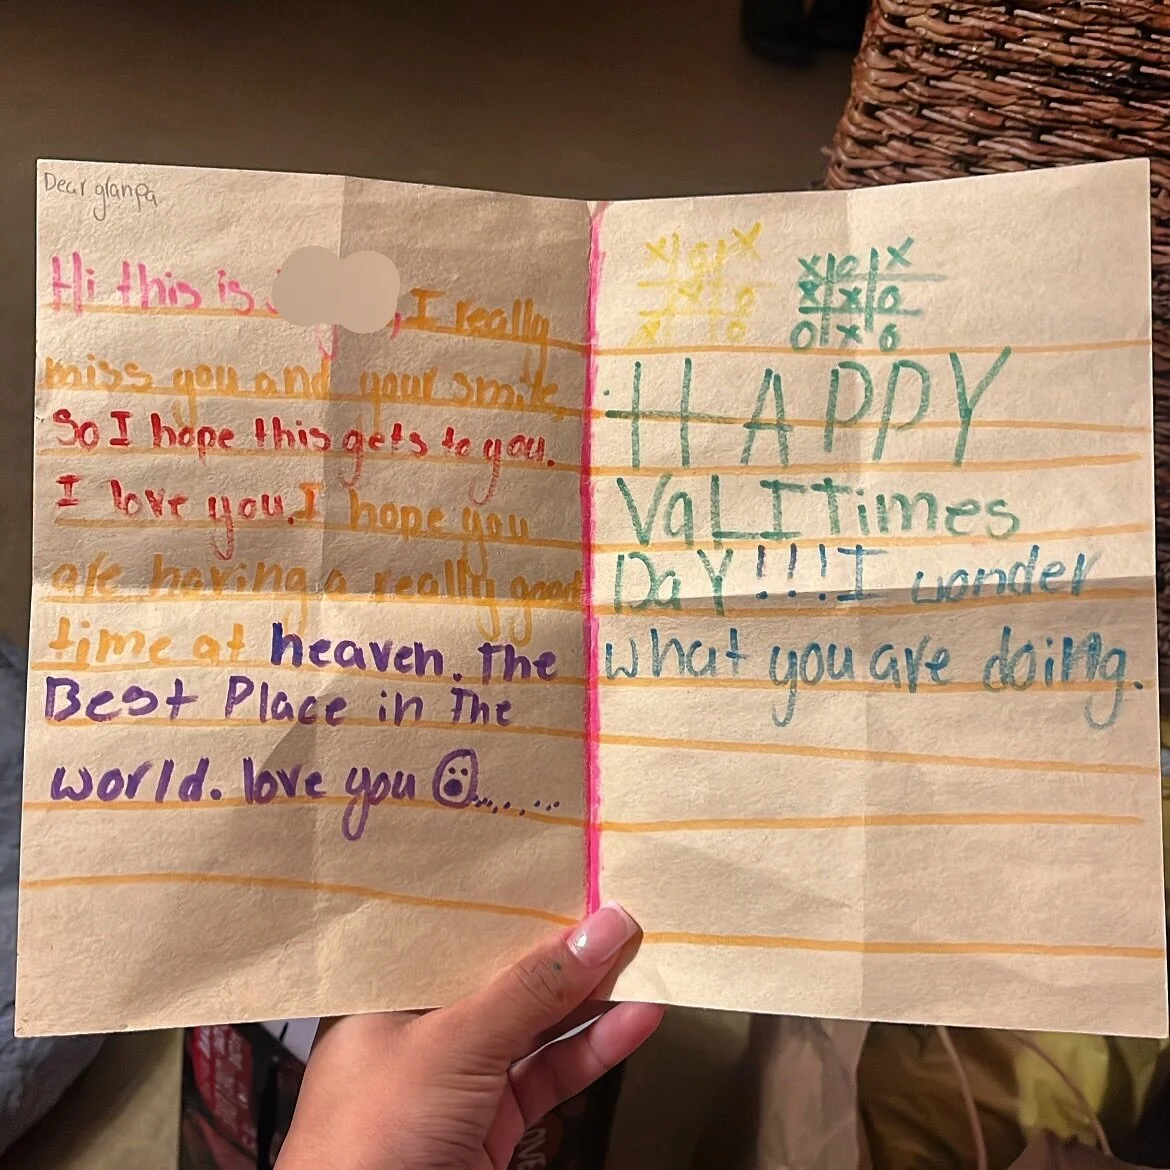 Dear granpa
Hi this is , I really
miss you and your smile,
So I hope this gets to you.
I love you. I hope you
are having a really good
time at heaven. The
Best Place in The
world. love you
X O X
X O
X O
X O X
X X O
O X O
HAPPY
VaLITimes
DaY!!! I wonder
what you are doing.